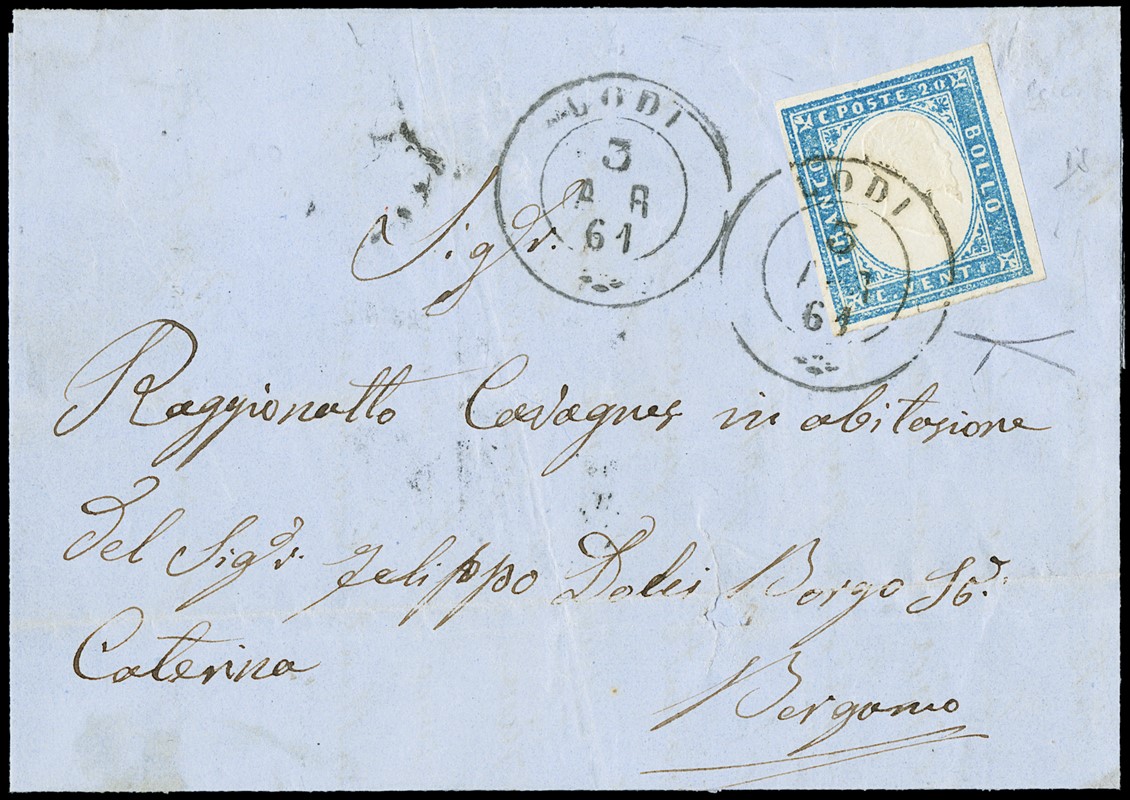 LODI
3
AR
61
C. POSTE. 20
BOLLO
C. VENTI
FRANCO
LODI
3
61
Sigr.
Raggionatto Cavagnes in abitasione
Del Sigr. Felippo Dolci Borgo Sa.
Caterina
Bergamo